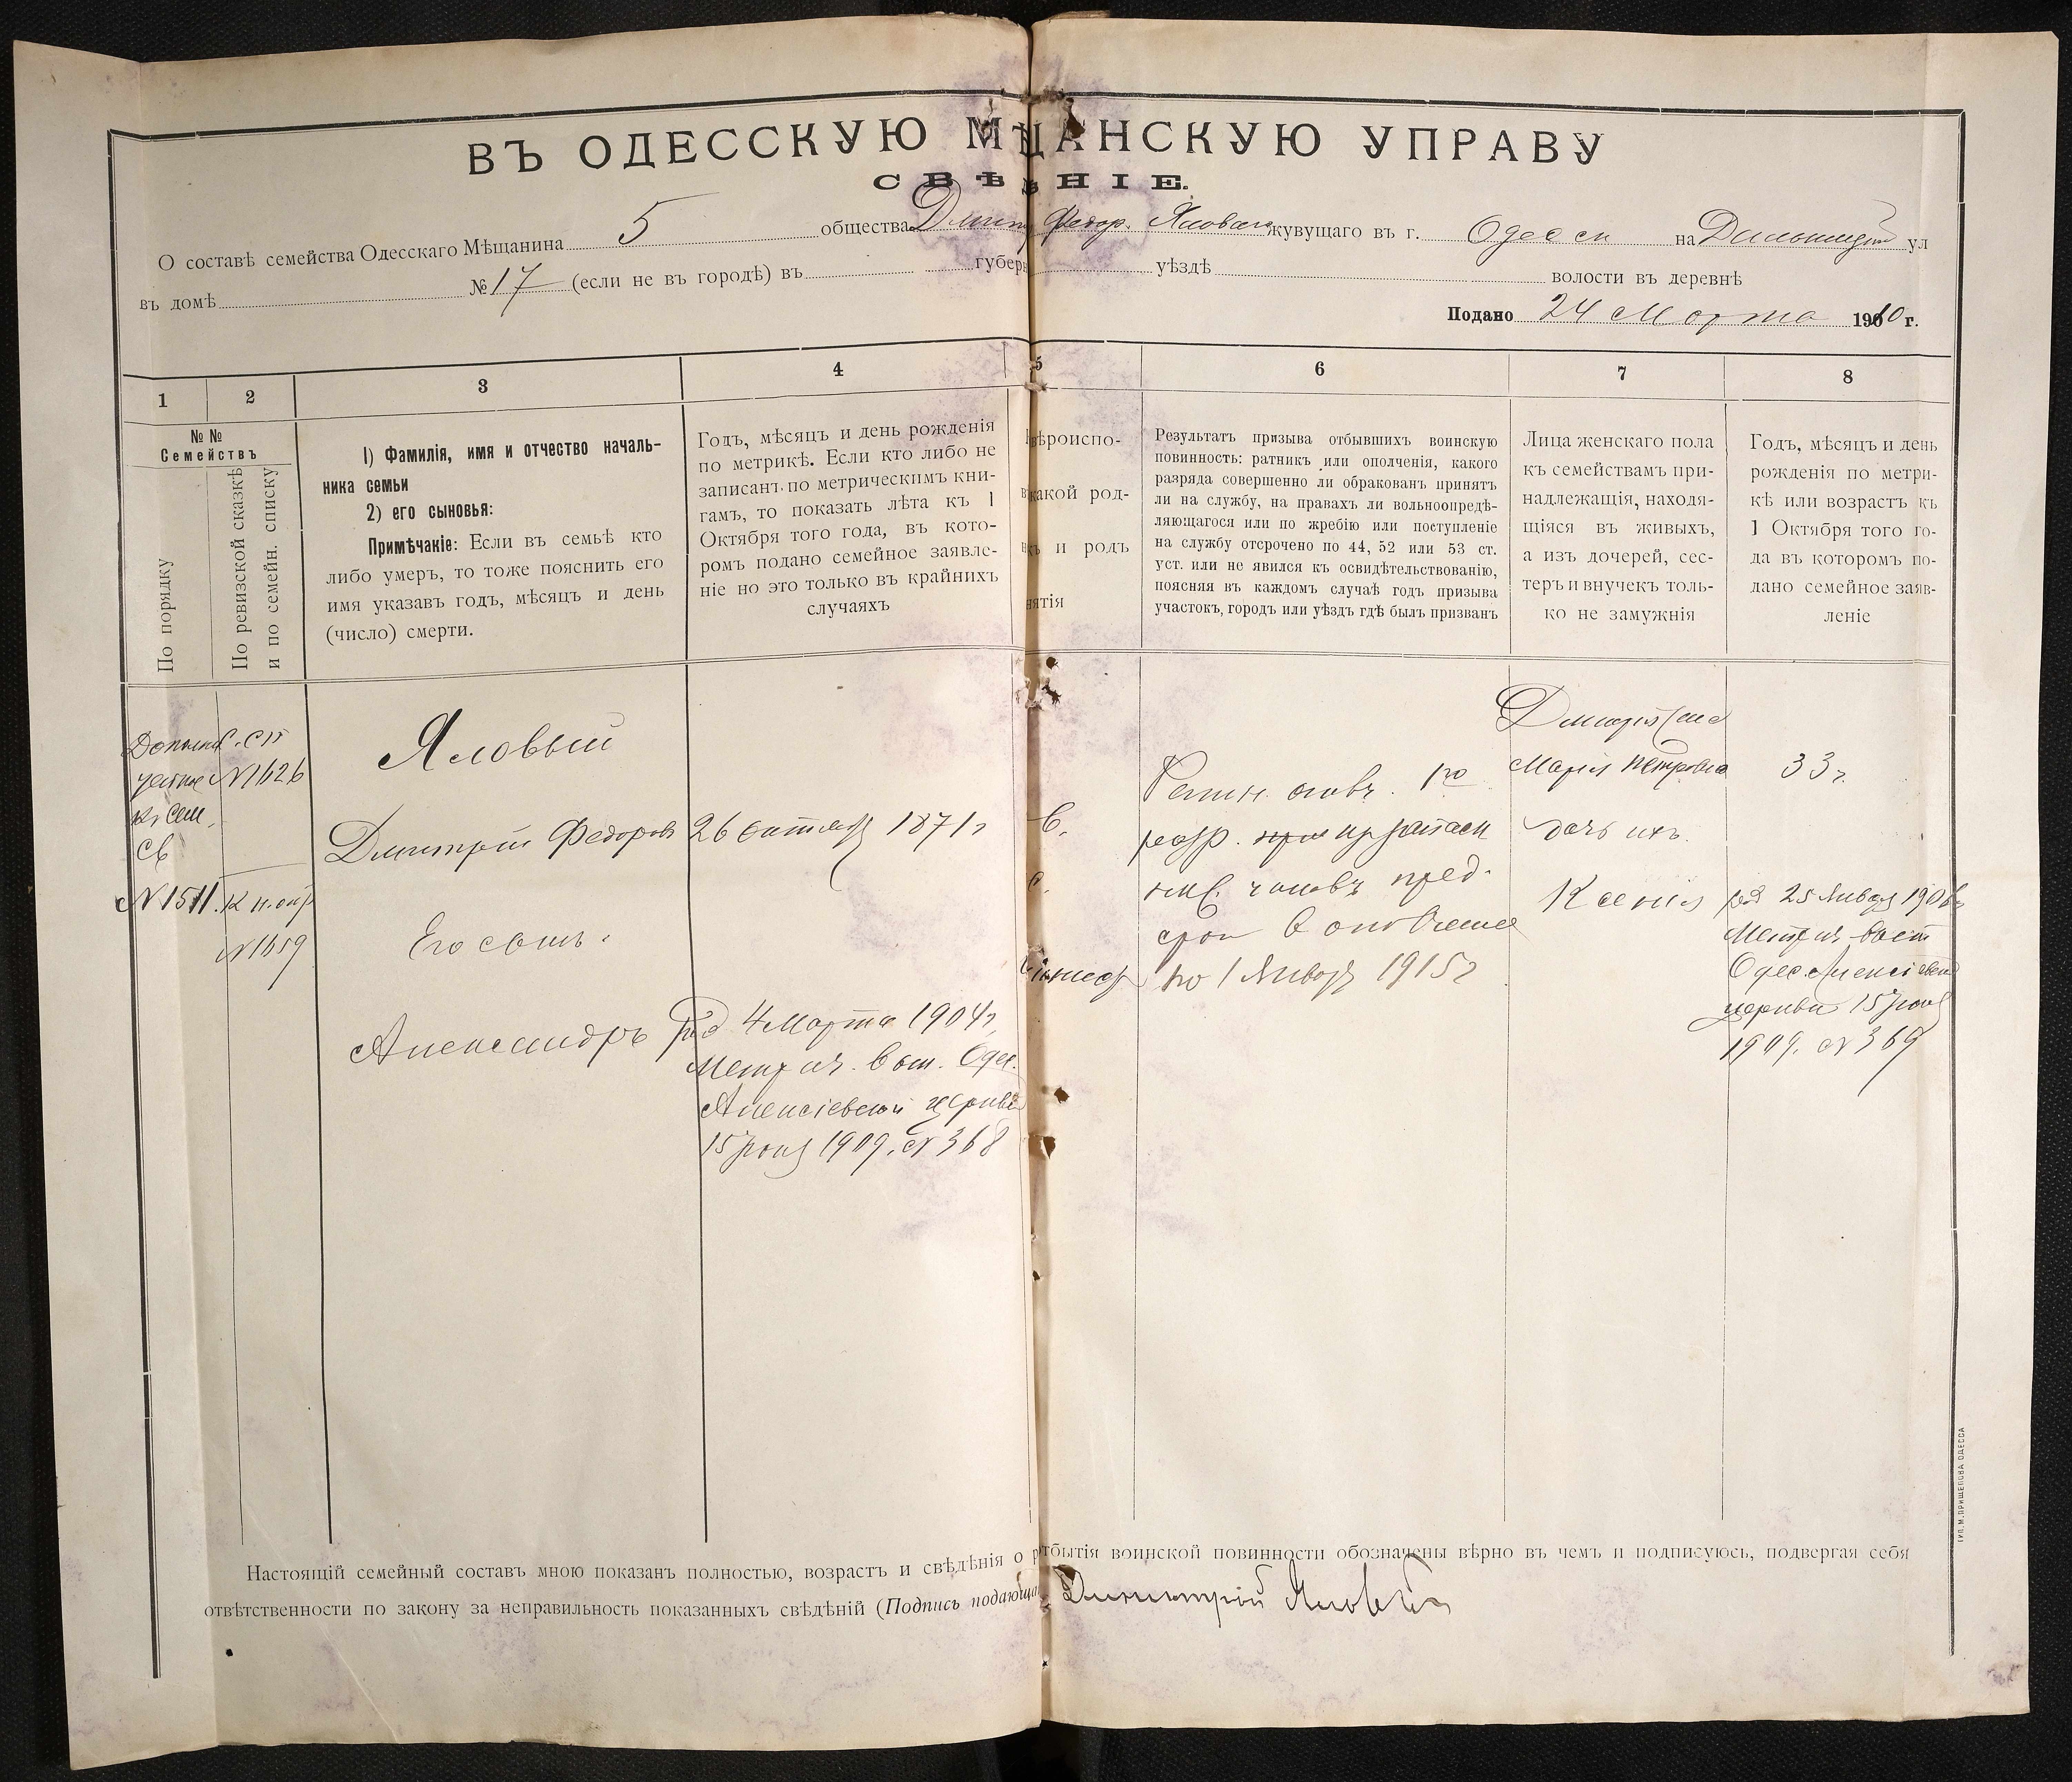 ВЪ ОДЕССКУЮ МѢЩАНСКУЮ УПРАВУ
СВѢ НІЕ.
О составѣ семейства Одесскаго Мѣщанина 5 общества Дмит Федор. Яловаго жувущаго въ г. Одесси на Дальницкой ул
въ домѣ № 17 (если не въ городѣ) въ губерн уѣздѣ волости въ деревнѣ
Подано 24 Марта 1910 г.
1 2 3 4 5 6 7 8
№ №
Семействъ
По порядку
По ревизской сказкѣ
и по семейн. списку
1) Фамилія, имя и отчество началь-
ника семьи
2) его сыновья:
Примѣчакіе: Если въ семьѣ кто
либо умеръ, то тоже пояснить его
имя указавъ годъ, мѣсяцъ и день
(число) смерти.
Годъ, мѣсяцъ и день рожденія
по метрикѣ. Если кто либо не
записанъ по метрическимъ кни-
гамъ, то показать лѣта къ 1
Октября того года, въ кото-
ромъ подано семейное заявле-
ніе но это только въ крайнихъ
случаяхъ
вѣроиспо-
какой род-
и родъ
нятія
Результатъ призыва отбывшихъ воинскую
повинность: ратникъ или ополченія, какого
разряда совершенно ли обракованъ принятъ
ли на службу, на правахъ ли вольноопредѣ-
ляющагося или по жребію или поступленіе
на службу отсрочено по 44, 52 или 53 ст.
уст. или не явился къ освидѣтельствованію,
поясняя въ каждомъ случаѣ годъ призыва
участокъ, городъ или уѣздъ гдѣ былъ призванъ
Лица женскаго пола
къ семействамъ при-
надлежащія, находя-
щіяся въ живыхъ,
а изъ дочерей, сес-
теръ и внучекъ толь-
ко не замужнія
Годъ, мѣсяцъ и день
рожденія по метри-
кѣ или возрастъ къ
1 Октября того го-
да въ которомъ по-
дано семейное заяв-
леніе
къ сем.
св
N 1511.
N 1626
N 1659
Яловый
Дмитрій Федоровъ
Его сынъ:
Александръ
26 октября 1871 г
род 4 Марта 1904 г,
Метрич. вып. Одес.
Алексіевской церкви
15 Іюня 1909. N 368
Ратн. опол. 1го
разр. изъ запаса
ниж. чиновъ пред.
срок въ ополченіе
по 1 Января 1915 г
Дмитрія жена
Марія Петровна
дочь ихъ
Ксенія
33 г.
род 25 Января 1906 г
Метрич вып
Одес. Алексіевской
церкви 15 Іюня
1909. N 369
Настоящій семейный составъ мною показанъ полностью, возрастъ и свѣдѣнія о отбытія воинской повинности обозначены вѣрно въ чемъ и подписуюсь, подвергая себя
отвѣтственности по закону за неправильность показанныхъ свѣдѣній (Подпись подающаго Димитрій Яловый
ТИП. М. ПРИЩЕПОВА ОДЕССА